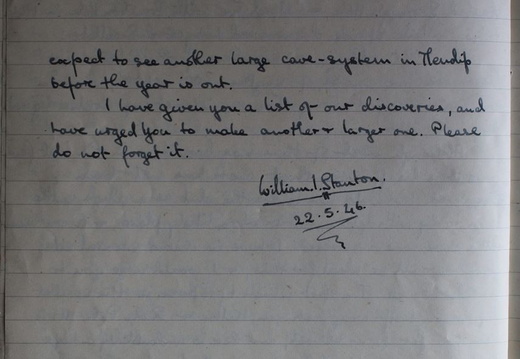 expect to see another large cave-system in Mendip
before the year is out.
I have given you a list of our discoveries, and
have urged you to make another & larger one. Please
do not forget it.
William I. Stanton.
22.5.46.